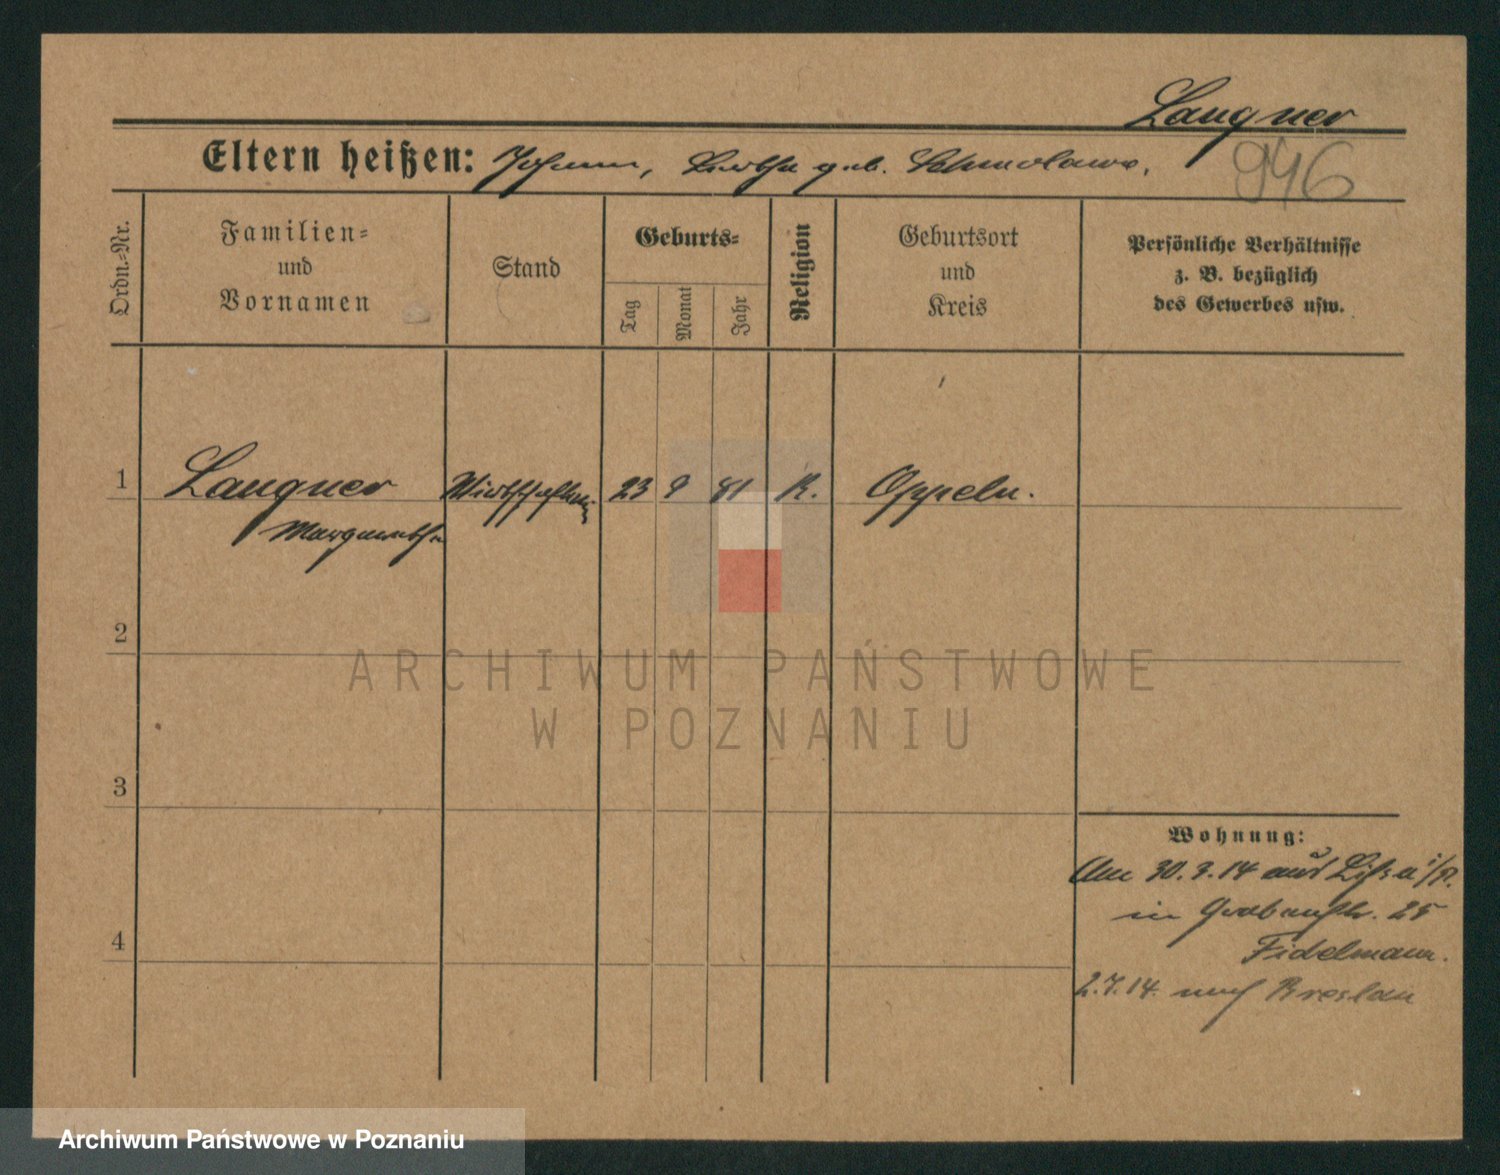 Langner
946
Eltern heißen: Johann, Bertha geb. Schmolawa.
Ordn.-Nr.
Familien- und Vornamen
Stand
Geburts-
Tag
Monat
Jahr
Religion
Geburtsort und Kreis
Persönliche Verhältnisse
z. B. bezüglich
des Gewerbes usw.
1 Langner Wirtschafterin 23 9 81 K. Oppeln.
Margarethe
2
ARCHIWUM PAŃSTWOWE
W POZNANIU
3
Wohnung:
Am 30.3.14 aus Lissa i/P.
in Grabenstr. 25
4
Fidelmann.
2.7.14. nach Breslau
Archiwum Państwowe w Poznaniu